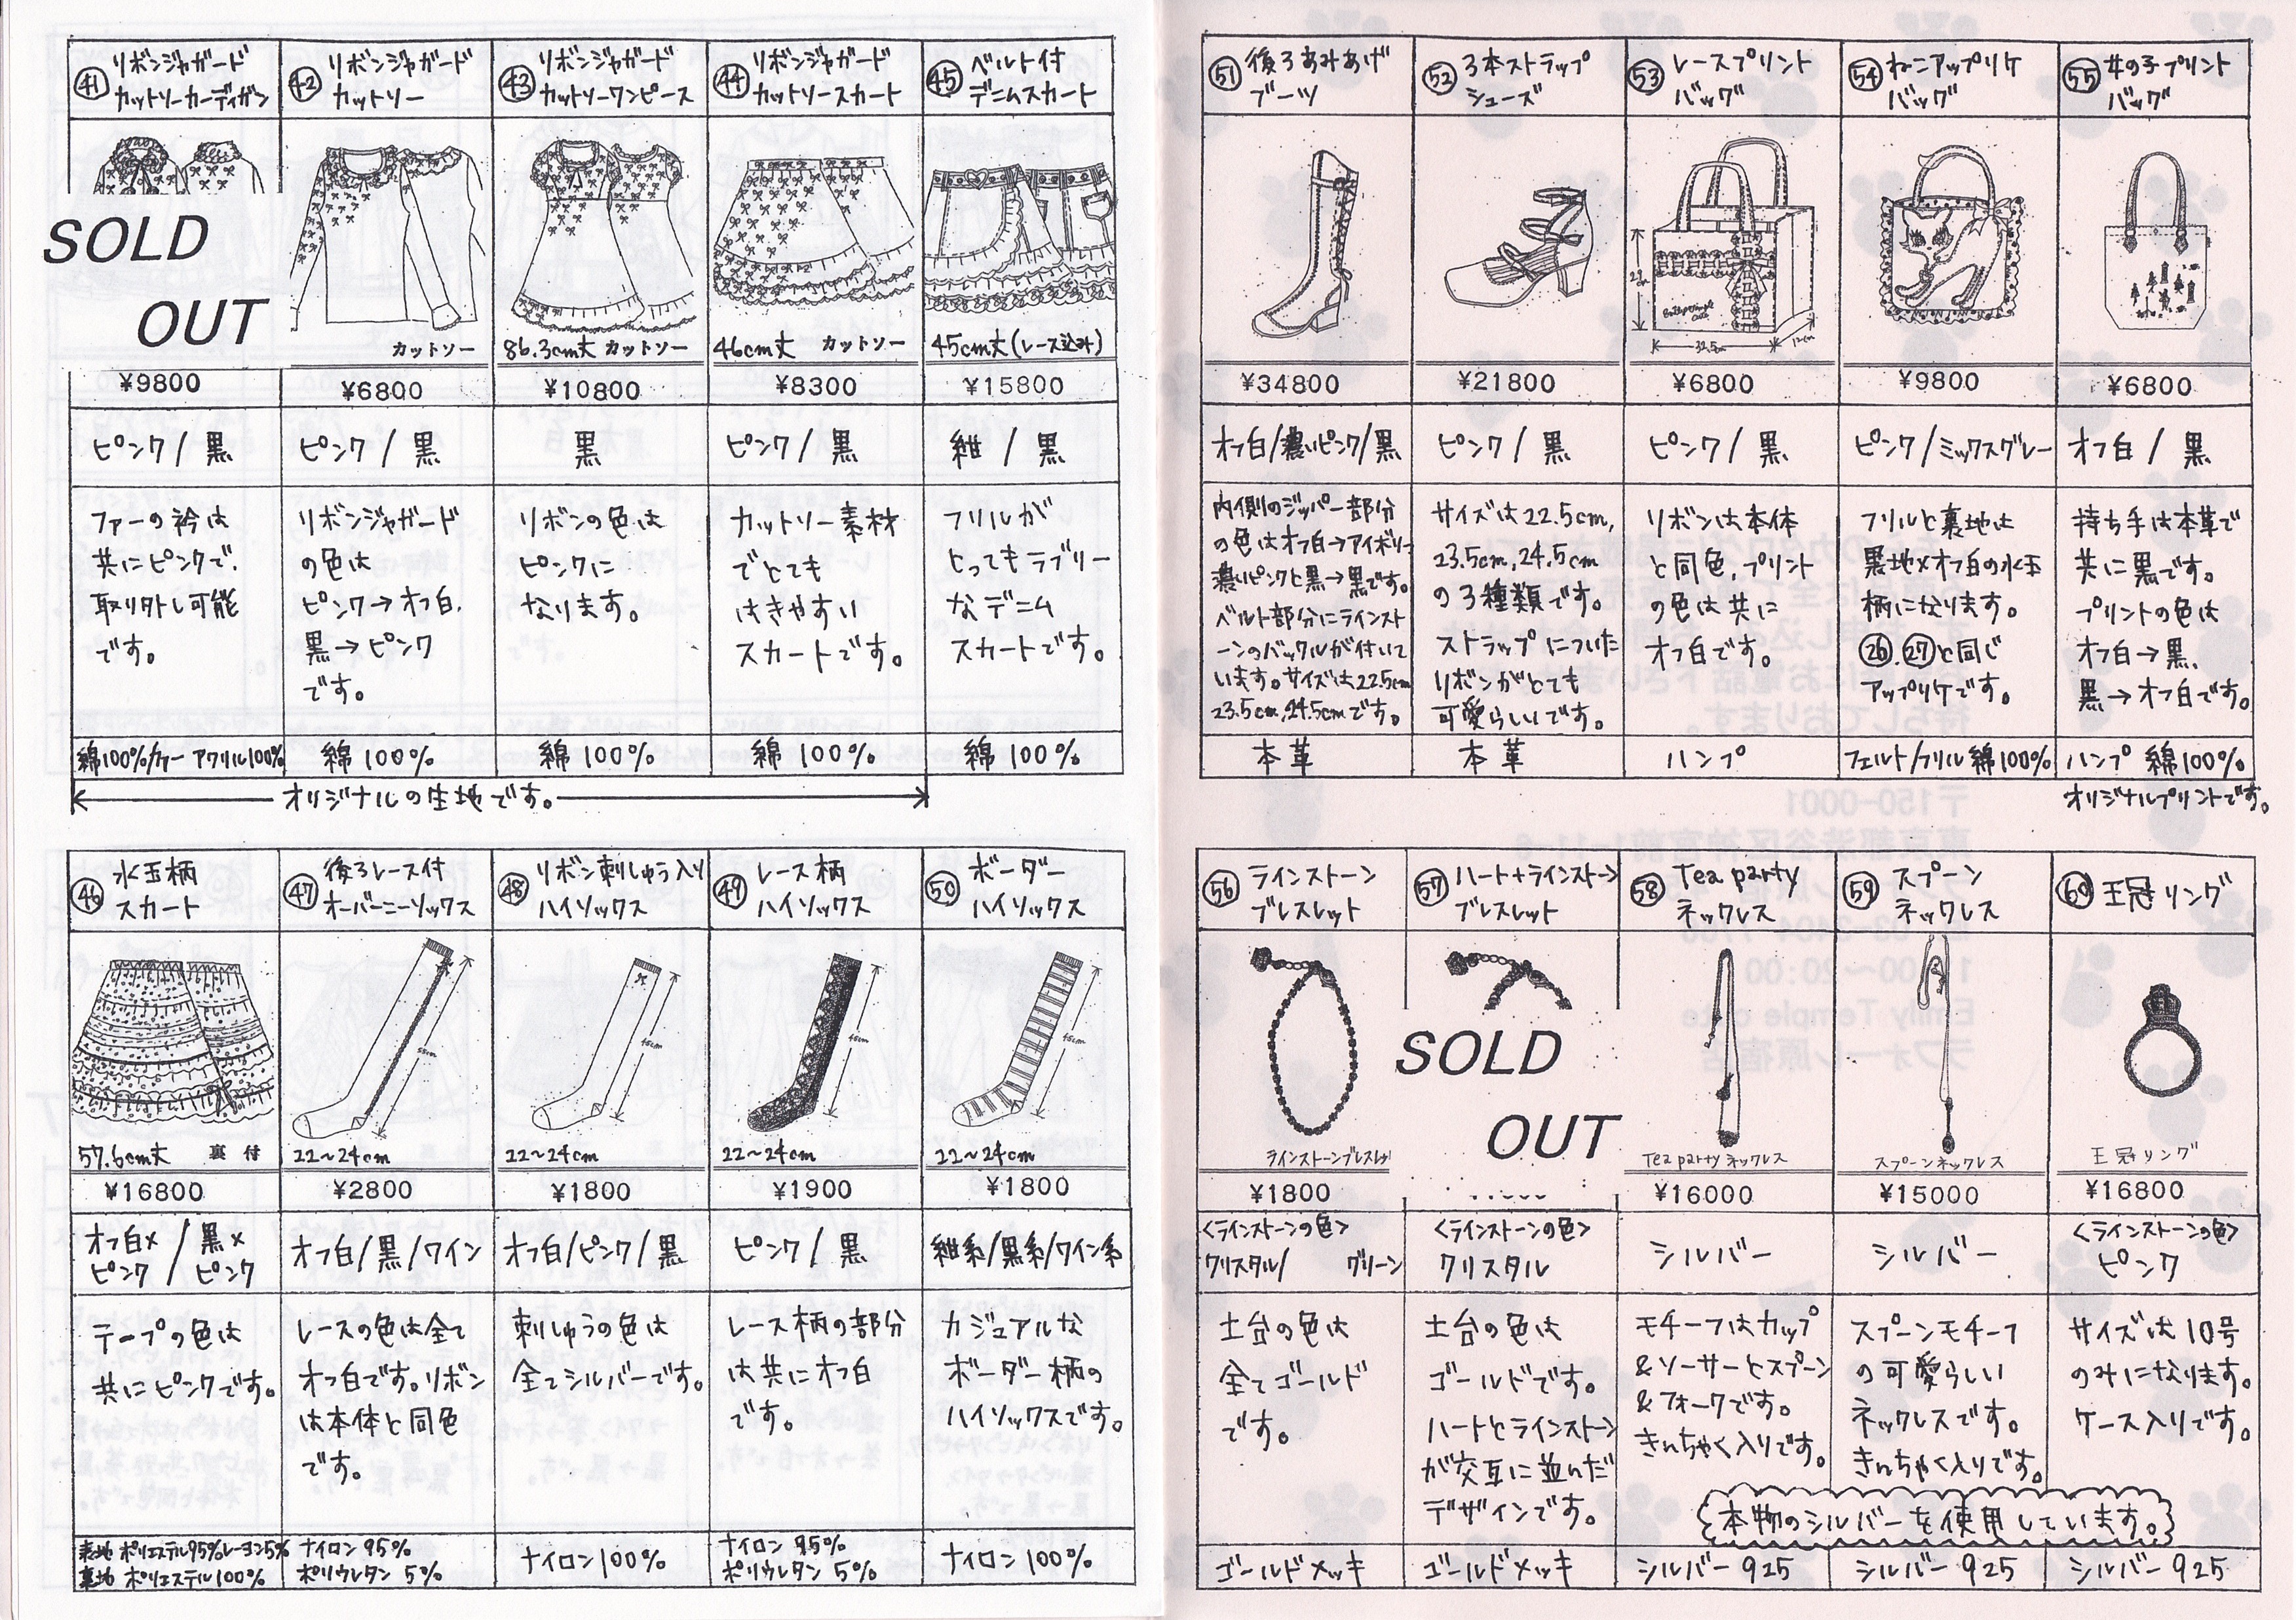 ㊶ リボンジャガード
カットソーカーディガン
SOLD
OUT
¥9800
ピンク / 黒
ファーの衿は
共にピンクで、
取り外し可能
です。
綿100%/ファー アクリル100%
㊷ リボンジャガード
カットソー
カットソー
¥6800
ピンク / 黒
リボンジャガード
の色は
ピンク→オフ白、
黒→ピンク
です。
綿 100%
㊸ リボンジャガード
カットソーワンピース
86.3cm丈 カットソー
¥10800
黒
リボンの色は
ピンクに
なります。
綿 100%
㊹ リボンジャガード
カットソースカート
46cm丈 カットソー
¥8300
ピンク / 黒
カットソー素材
でとても
はきやすい
スカートです。
綿 100%
㊺ ベルト付
デニムスカート
45cm丈(レース込み)
¥15800
紺 / 黒
フリルが
とってもラブリー
なデニム
スカートです。
綿 100%
オリジナルの生地です。
㊻ 水玉柄
スカート
57.6cm丈 裏付
¥16800
オフ白×ピンク / 黒×ピンク
テープの色は
共にピンクです。
表地 ポリエステル95%レーヨン5%
裏地 ポリエステル100%
㊼ 後ろレース付
オーバーニーソックス
55cm
22~24cm
¥2800
オフ白/黒/ワイン
レースの色は全て
オフ白です。リボン
は本体と同色
です。
ナイロン 95%
ポリウレタン 5%
㊽ リボン刺しゅう入り
ハイソックス
45cm
22~24cm
¥1800
オフ白/ピンク/黒
刺しゅうの色は
全てシルバーです。
ナイロン100%
㊾ レース柄
ハイソックス
45cm
22~24cm
¥1900
ピンク / 黒
レース柄の部分
は共にオフ白
です。
ナイロン 95%
ポリウレタン 5%
㊿ ボーダー
ハイソックス
45cm
22~24cm
¥1800
紺系/黒系/ワイン系
カジュアルな
ボーダー柄の
ハイソックスです。
ナイロン 100%
51 後ろあみあげ
ブーツ
¥34800
オフ白/濃いピンク/黒
内側のジッパー部分
の色はオフ白→アイボリー
濃いピンクと黒→黒です。
ベルト部分にラインスト
ーンのバックルが付いて
います。サイズは22.5cm
23.5cm,24.5cmです。
本革
52 3本ストラップ
シューズ
¥21800
ピンク / 黒
サイズは22.5cm,
23.5cm,24.5cm
の3種類です。
ストラップについた
リボンがとても
可愛らしいです。
本革
53 レースプリント
バッグ
32.5cm
12cm
¥6800
ピンク / 黒
リボンは本体
と同色、プリント
の色は共に
オフ白です。
ハンプ
54 ねこアップリケ
バッグ
¥9800
ピンク/ミックスグレー
フリルと裏地は
黒地×オフ白の水玉
柄になります。
㉖,㉗と同じ
アップリケです。
フェルト/フリル 綿100%
55 女の子プリント
バッグ
¥6800
オフ白 / 黒
持ち手は本革で
共に黒です。
プリントの色は
オフ白→黒、
黒→オフ白です。
ハンプ 綿100%
オリジナルプリントです。
56 ラインストーン
ブレスレット
ラインストーンブレスレット
¥1800
<ラインストーンの色>
クリスタル/ グリーン
土台の色は
全てゴールド
です。
ゴールドメッキ
57 ハート+ラインストーン
ブレスレット
SOLD
OUT
<ラインストーンの色>
クリスタル
土台の色は
ゴールドです。
ハートとラインストーン
が交互に並んだ
デザインです。
ゴールドメッキ
58 Tea party
ネックレス
Tea party ネックレス
¥16000
シルバー
モチーフはカップ
&ソーサーとスプーン
&フォークです。
きんちゃく入りです。
シルバー 925
59 スプーン
ネックレス
スプーンネックレス
¥15000
シルバー
スプーンモチーフ
の可愛らしい
ネックレスです。
きんちゃく入りです。
シルバー 925
60 王冠リング
王冠リング
¥16800
<ラインストーンの色>
ピンク
サイズは10号
のみになります。
ケース入りです。
本物のシルバーを使用しています。
シルバー 925